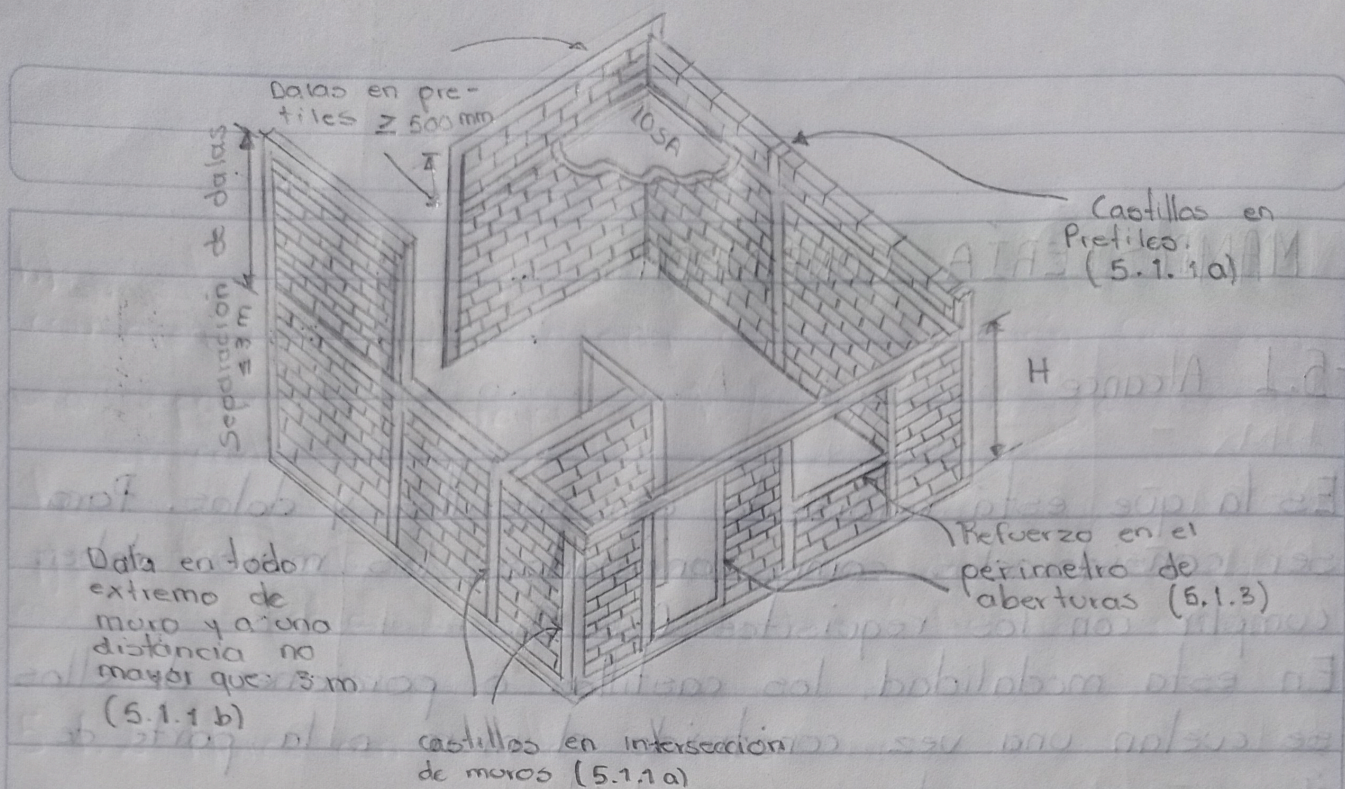 Dalas en pre-
tiles ≥ 500 mm
LOSA
Separación de dalas
≤ 3 m
Castillos en
Pretiles.
(5.1.1a)
H
Refuerzo en el
perimetro de
aberturas (5.1.3)
Dala en todo
extremo de
muro y a una
distáncia no
mayor que 3 m
(5.1.1 b)
castillos en intersección
de muros (5.1.1a)